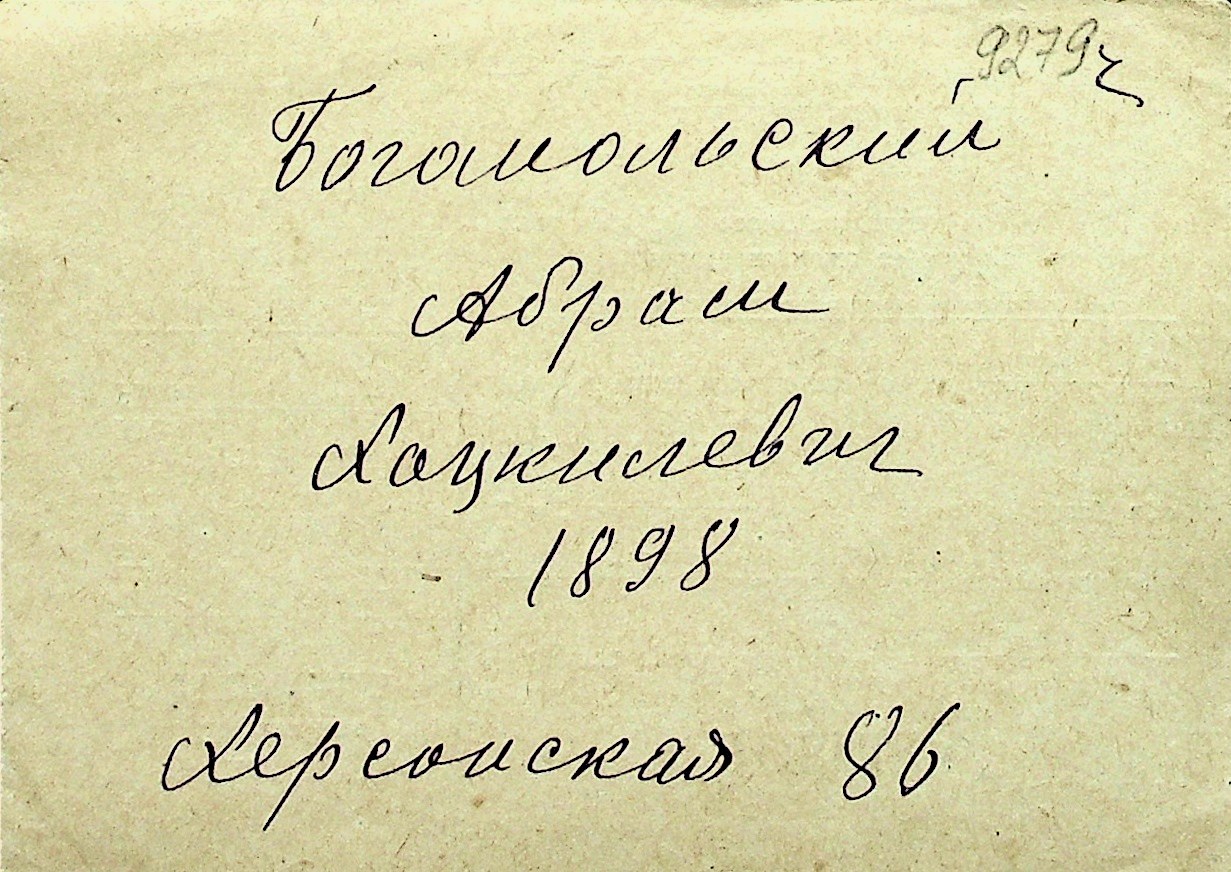 9279ч
Богомольский
Абрам
Хацкилевич
1898
Херсонская 86